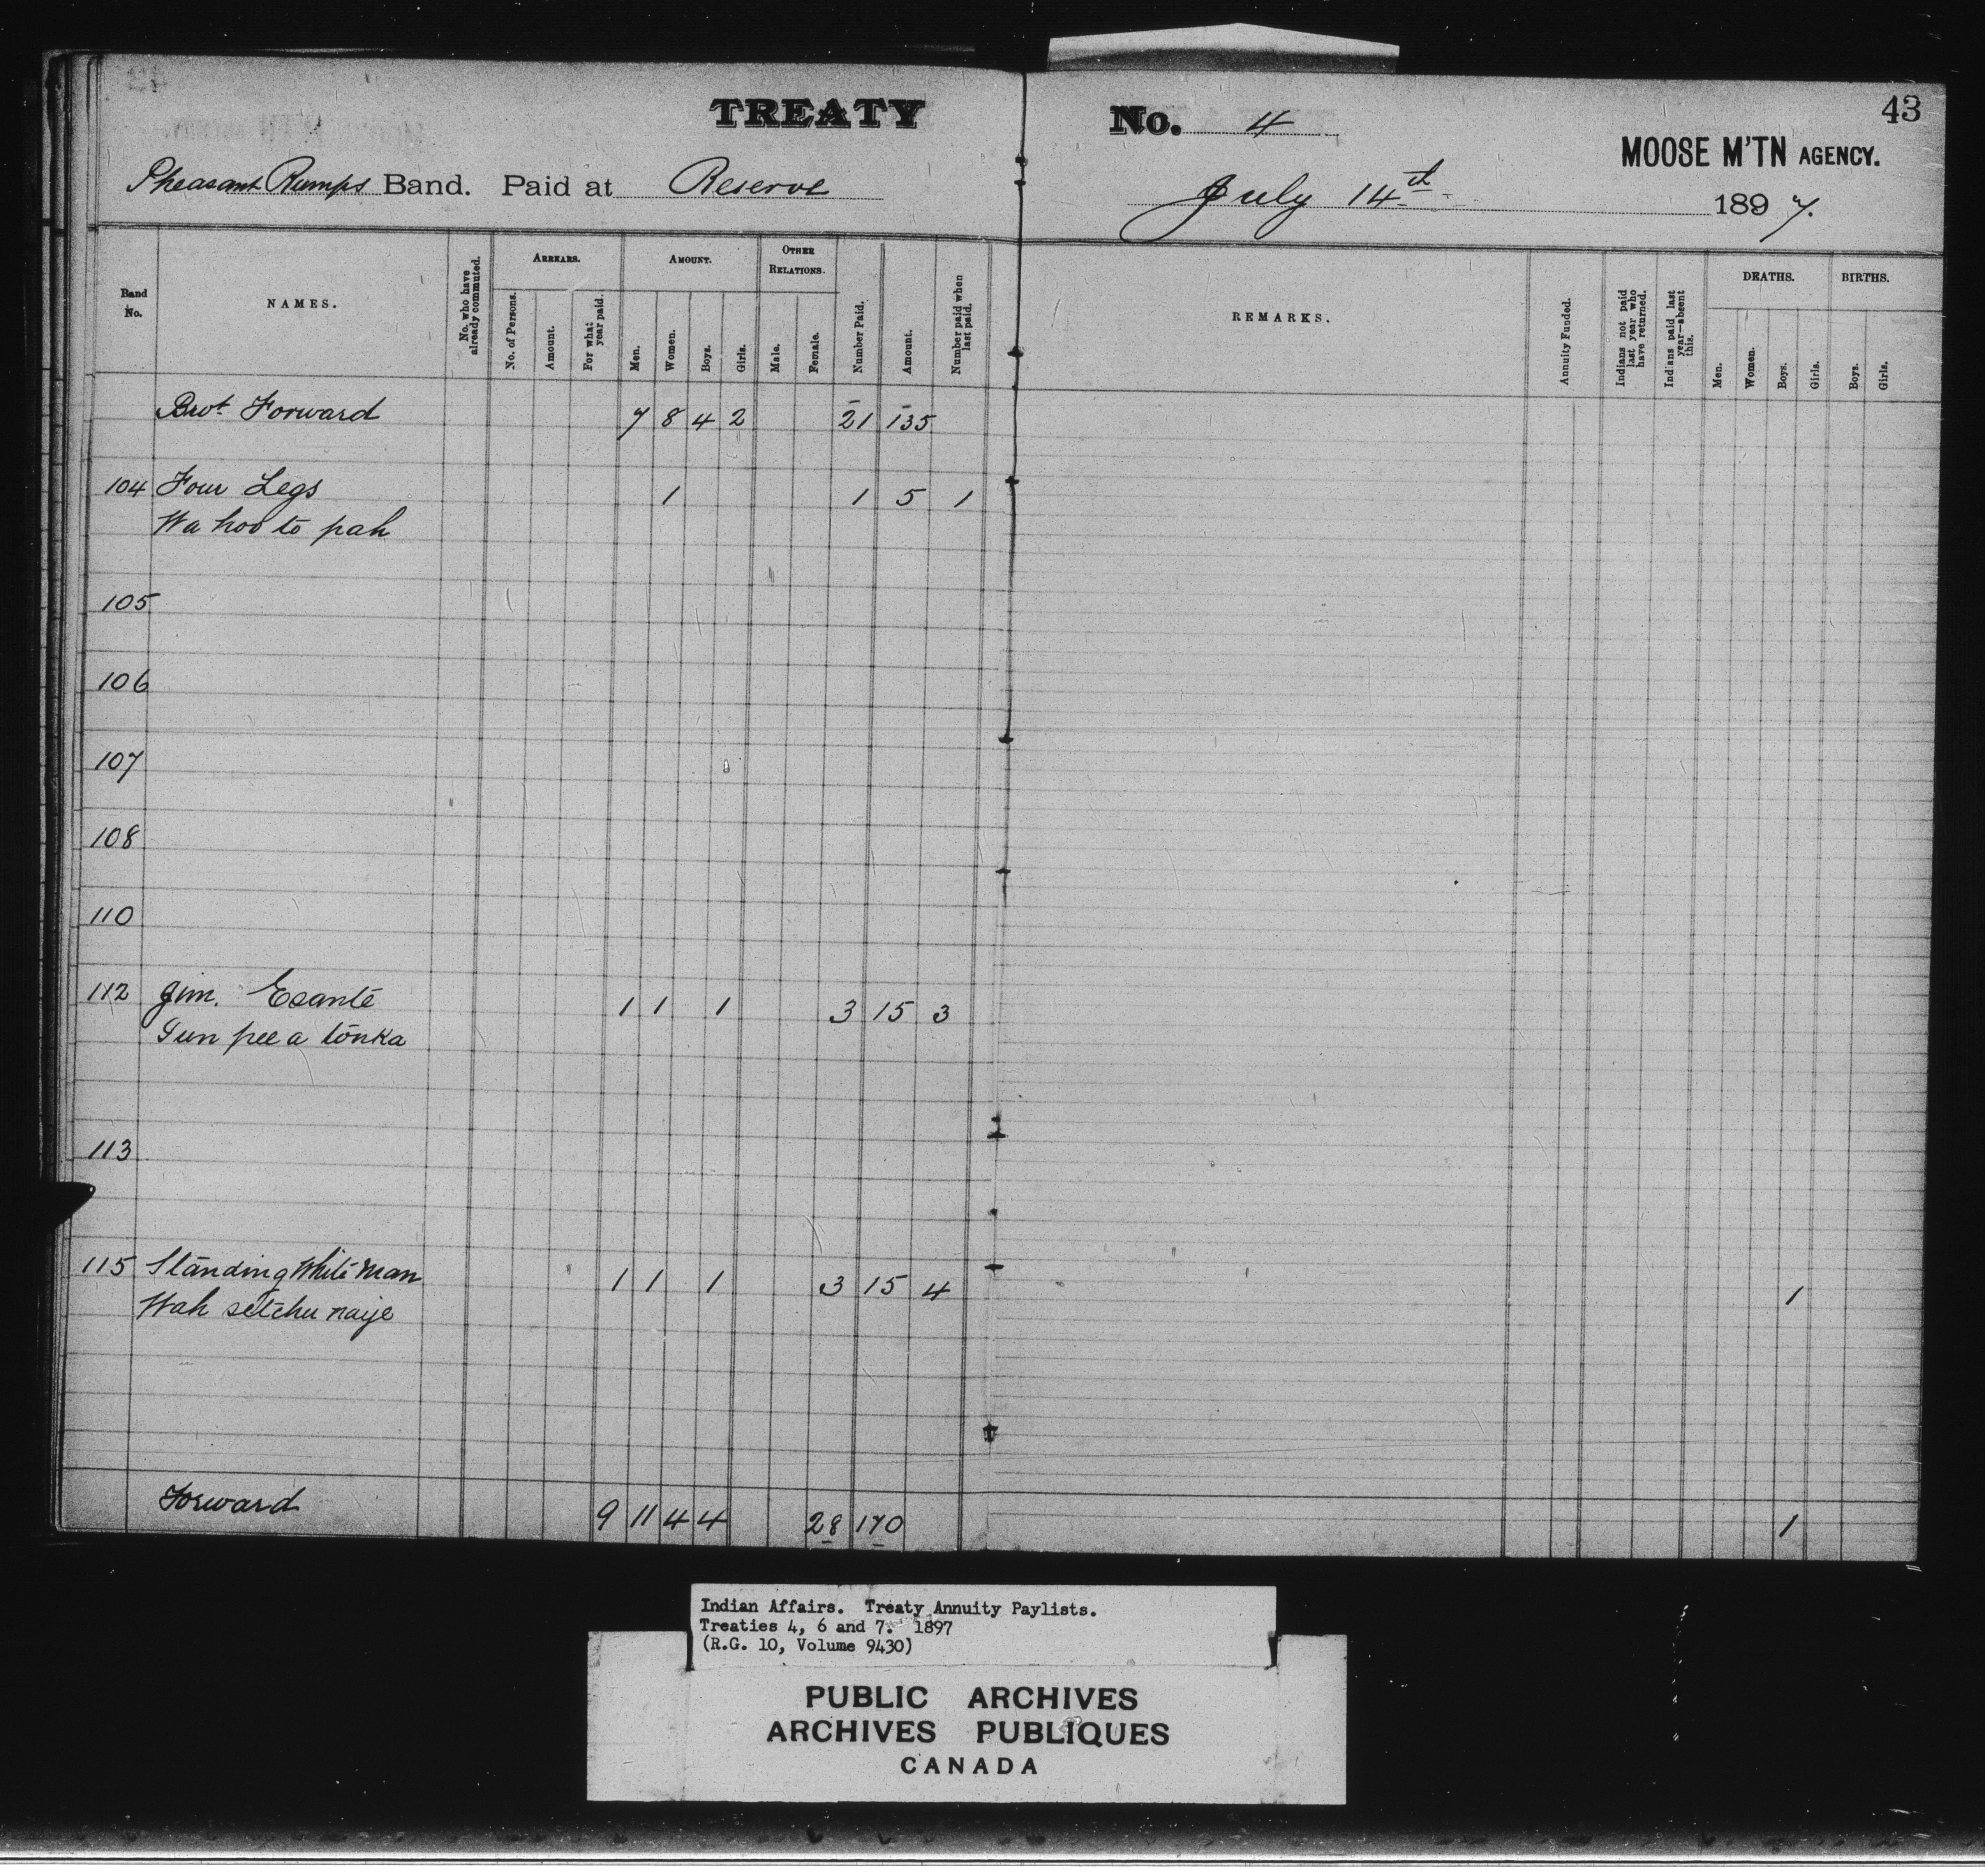 TREATY No. 4
43
MOOSE M'TN AGENCY.
Pheasant Rumps Band. Paid at Reserve July 14th 1897.
Band No.
NAMES.
No. who have already commuted.
ARREARS.
No. of Persons.
Amount.
For what year paid.
AMOUNT.
Men.
Women.
Boys.
Girls.
OTHER RELATIONS.
Male.
Female.
Number Paid.
Amount.
Number paid when last paid.
REMARKS.
Annuity Funded.
Indians not paid last year who have returned.
Indians paid last year—absent this.
DEATHS.
Men.
Women.
Boys.
Girls.
BIRTHS.
Boys.
Girls.
Brot Forward 7 8 4 2 21 135
104 Four Legs 1 1 5 1
Wa hoo to pah
105
106
107
108
110
112 Jim. Esante 1 1 1 3 15 3
Sun pee a tonka
113
115 Standing White Man 1 1 1 3 15 4 1
Wah setchu naije
Forward 9 11 4 4 28 170 1
Indian Affairs. Treaty Annuity Paylists.
Treaties 4, 6 and 7. 1897
(R.G. 10, Volume 9430)
PUBLIC ARCHIVES
ARCHIVES PUBLIQUES
CANADA